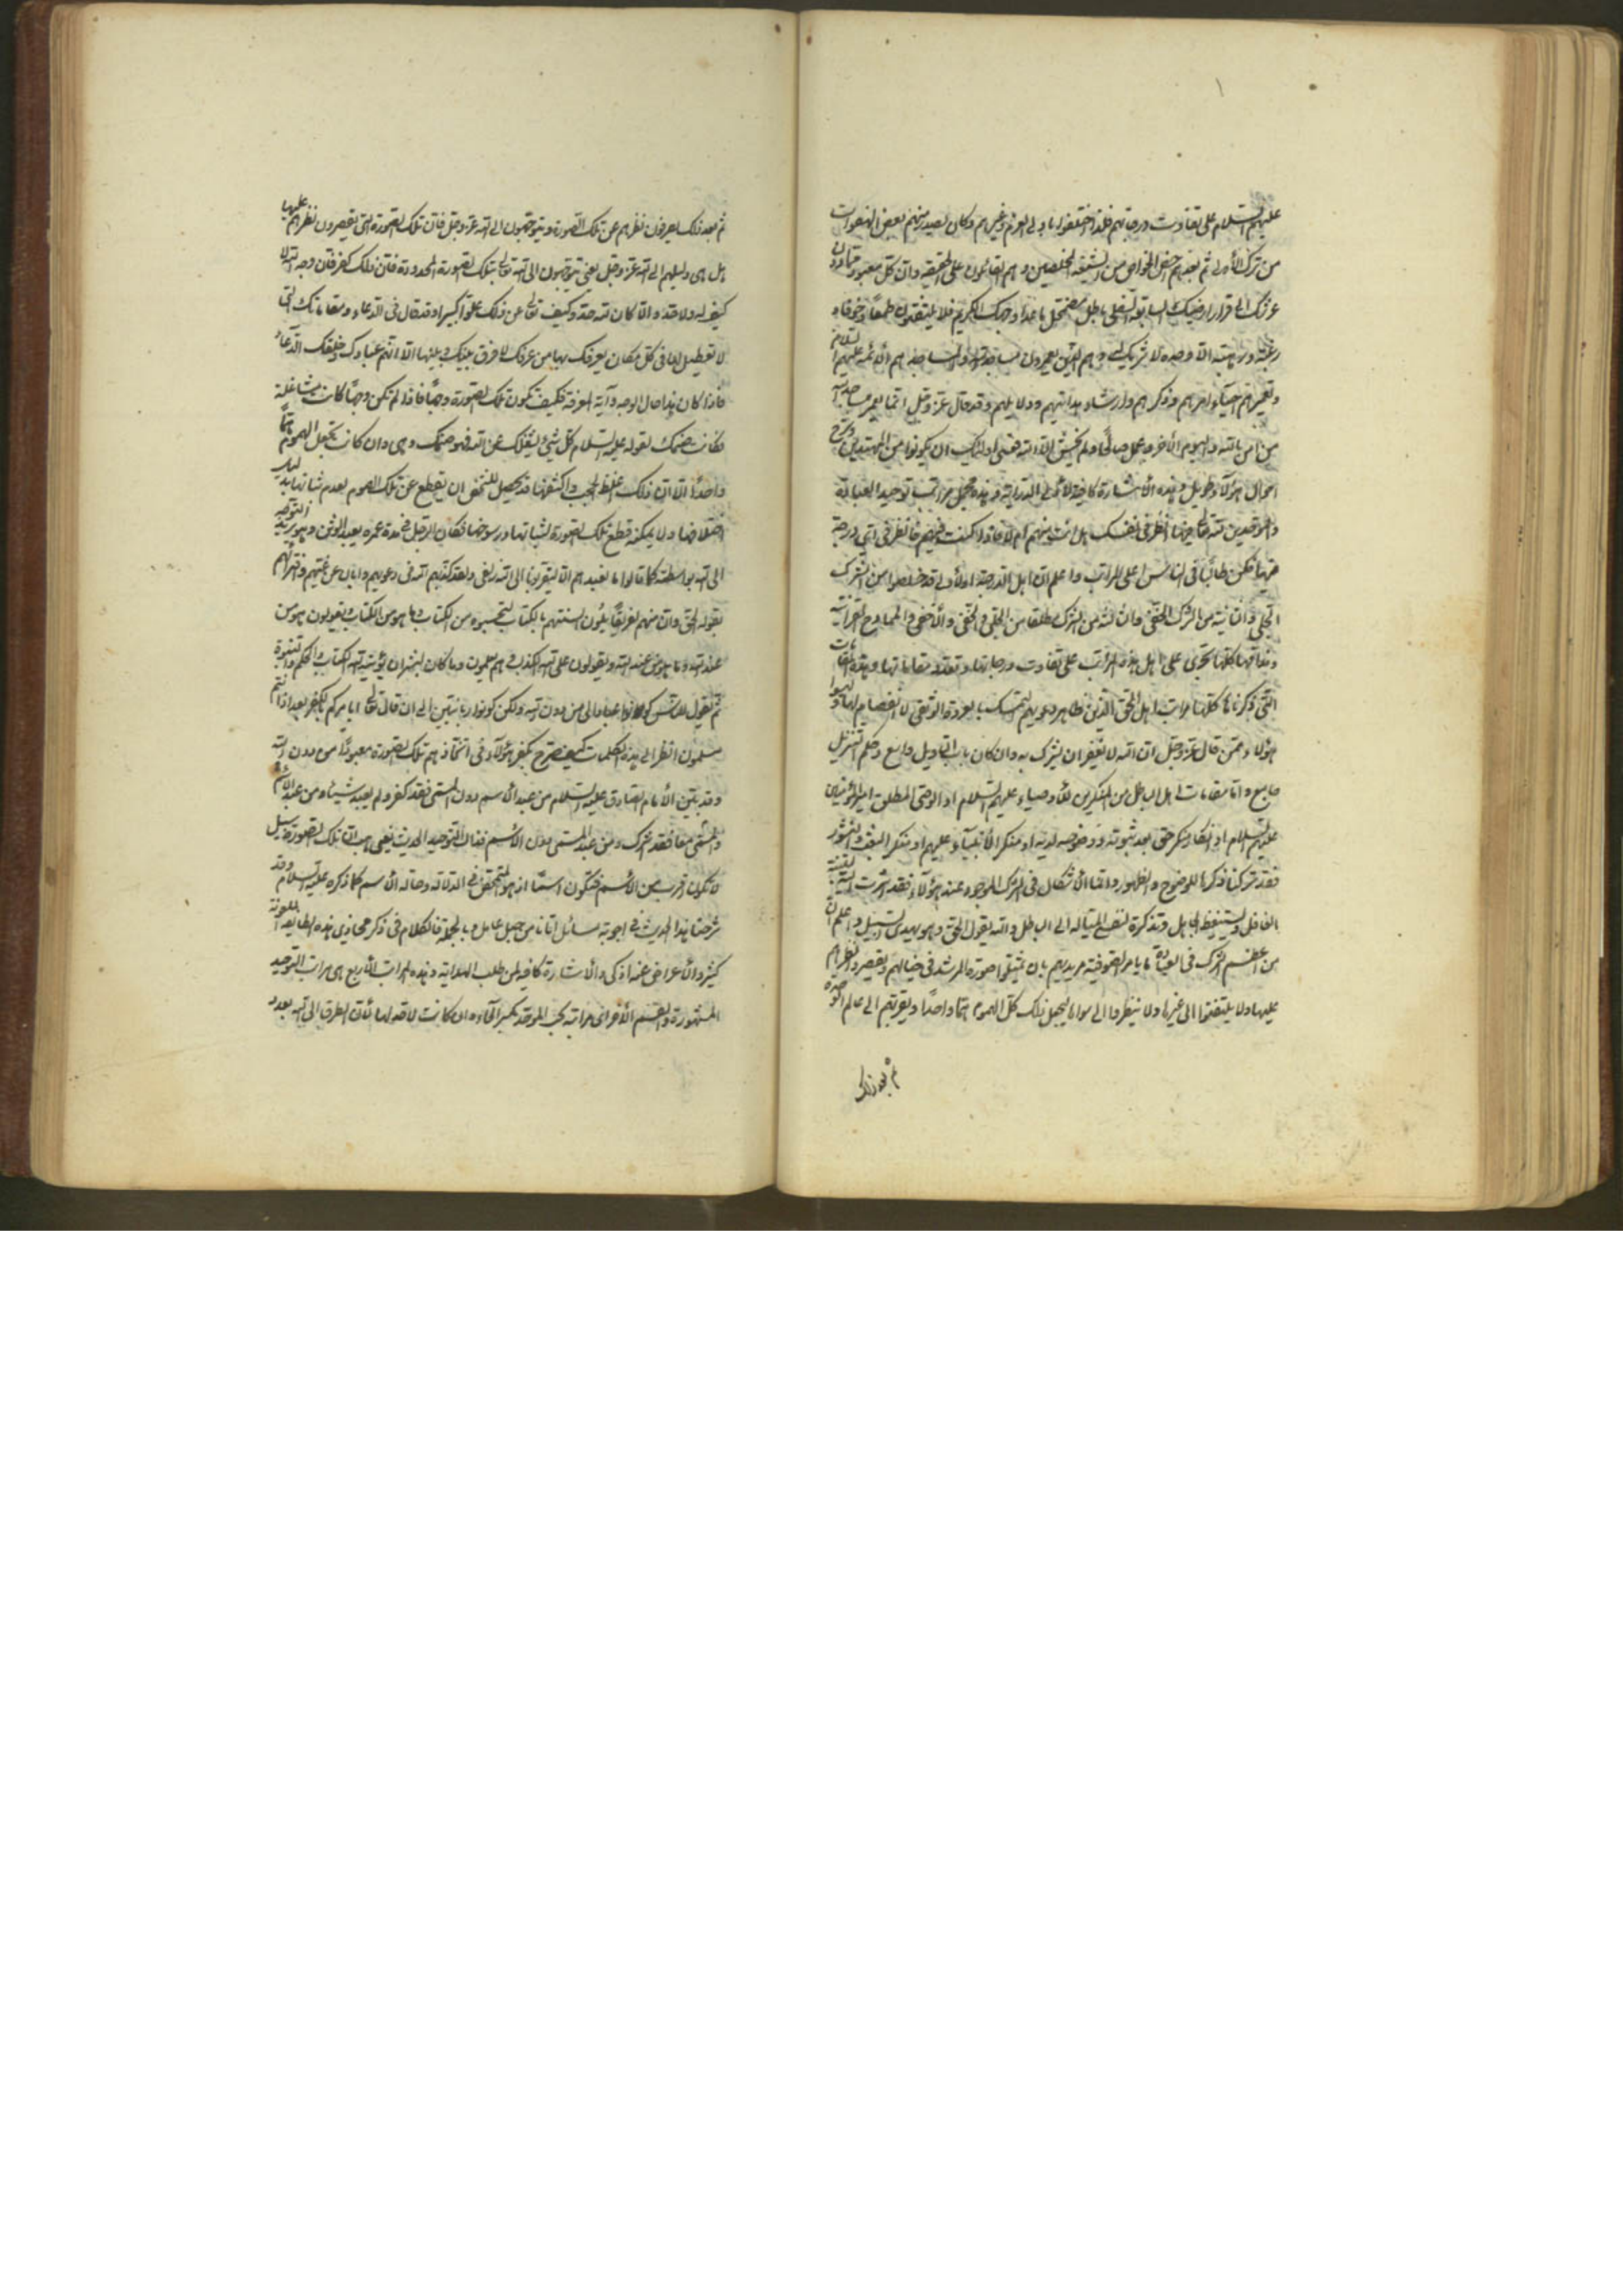 عليهم السلام على تفاوت درجاتهم فلذا اختلفوا باولى العزم وغيرهم وكان يصدر منهم بعض الهفوات
من ترك الأولى ثم بعدهم خصيص الخواص من الشيعة المخلصين وهم القائلون على الحقيقة وان كل معبود مما دون
عرشك الى قرار ارضيك السابعة السفلى باطل مضمحل ما عدا وجهك الكريم فلا يلتفتون طمعا وخوفا و
رغبة ورهبة الا وحده لا شريك له وهم الذين يعمرون مساجد الله والمساجد هم الأئمة عليهم السلام
وتعميرهم احياء امرهم وذكرهم وارشاد بداتهم وولايتهم وقد قال عز وجل انما يعمر مساجد الله
من امن بالله واليوم الأخر وعمل صالحا ولم يخش الا الله فعسى اولئك ان يكونوا من المهتدين وشرح
احوال هؤلاء طويل وهذه الأشارة كافية لأولى الدراية وهذه مجمل مراتب توحيد العبادة
والموحدين لله تعالى فيها انظر في نفسك هل انت منهم ام لا فاذا كنت فيهم فانظر في اي درجة
فيها تكن طالبا في الناس اعلى المراتب واعلم ان اهل الدرجة الأولى قد خلصوا من الشرك
الجلي والثانية من الشرك الخفي والثالثة من الشرك مطلقا من الجلي والخفي والأخفى والممادح القرآنية
ونداءتها كلها تجرى على اهل هذه المراتب على تفاوت درجاتها وتعدد مقاماتها وهذه المقامات
التي ذكرناها كلها مراتب اهل الحق الذين ظاهر دعويهم التمسك بالعروة الوثقى لا انفصام لها وليسوا
هؤلاء ممن قال عز وجل ان الله لا يغفر ان يشرك به وان كان باب التاويل واسع وحكم التنزيل
جامع واما مقامات اهل الباطل من المنكرين للأوصياء عليهم السلام او الوصى المطلق امير المؤمنين
عليه السلام او انكار منكر حق بعد ثبوته ووضوحه لديه او منكر الأنبياء عليهم او منكر البعث والنشور
فقد تركنا ذكرها للوضوح والظهور وانما الأشكال في الشرك الموجود عند هؤلاء فقد اشرت اليه لتنبيه
الغافل وليستيقظ الجاهل وتذكرة لنفسى الميالة الى الباطل والله يقول الحق وهو يهدى السبيل واعلم ان
من اعظم الشرك في العبادة ما يامر الصوفية مريديهم بان يمثلوا صورة المرشد في خيالهم ويقصروا نظرهم
عليها ولا يلتفتوا الى غيرها ولا ينظروا الى سواها ليجعل ذلك كل الهموم هما واحدا ويقربهم الى عالم الوحدة
ثم بعد ذلك
ثم بعد ذلك يصرفون نظرهم عن تلك الصورة ويتوجهون الى الله عز وجل فان تلك الصورة التى يقصرون نظرهم عليها
هل هى دليلهم الى الله عز وجل يعنى يتوجهون الى الله تعالى بتلك الصورة المحدودة فان ذلك كفر فان وجه الله لا
كيف له ولا حد والا كان لله حد وكيف تعالى عن ذلك علوا كبيرا وقد قال في الدعاء ومقاماتك التى
لا تعطيل لها في كل مكان يعرفك بها من عرفك لا فرق بينك وبينها الا انهم عبادك وخلقك الدعاء
فاذا كان هذا حال الوجه وآية المعرفة فكيف تكون تلك الصورة وجها فاذا لم تكن وجها كانت شاغلة
فكانت صنمك لقوله عليه السلام كل شيء شغلك عن الله فهو صنمك وهى وان كانت تجعل الهموم هما
واحدا الا ان ذلك اغلظ الحجب واكثفها قد يحصل للشخص ان يقطع عن تلك الهموم بعدم ثباتها بدليل
اختلافها ولا يمكنه قطع تلك الصورة لثباتها ورسوخها فكان الرجل في مدة عمره يعبد الوثن وهو يريد التوجه
الى الله بواسطته كما قالوا ما نعبدهم الا ليقربونا الى الله زلفى ولقد كذبهم الله في دعويهم وابان عن غيهم وفتراتهم
بقوله الحق وان منهم لفريقا يلون السنتهم بالكتاب لتحسبوه من الكتاب وما هو من الكتاب ويقولون هو من
عند الله وما هو من عند الله ويقولون على الله الكذب وهم يعلمون وما كان لبشر ان يؤتيه الله الكتاب والحكم والنبوة
ثم يقول للناس كونوا عبادا لي من دون الله ولكن كونوا ربانيين الى ان قال تعالى ايامركم بالكفر بعد اذ انتم
مسلمون انظر الى هذه الكلمات كيف صرح بكفر هؤلاء في اتخاذهم تلك الصورة معبودا من دون الله
وقد بين الأمام الصادق عليه السلام من عبد الأسم دون المسمى فقد كفر ولم يعبد شيئا ومن عبد الأسم
والمسمى معا فقد اشرك ومن عبد المسمى بدون الأسم فذاك التوحيد الحديث نفى هب ان تلك الصورة دليل
لا تكون اقرب من الأسم فتكون اسما اذ هو المتحقق في الدلالة وحاله الأسم كما ذكره عليه السلام وقد
شرحنا هذا الحديث في اجوبة مسائل اتانا من جبل عامل وبالجملة فالكلام في ذكر مخازى هذه الطايفة الملعونة
كثير والأعراض عنه اذكى والأشارة كافية لمن طلب الهداية وهذه المراتب الأربع هى مراتب التوحيد
المشهورة والقسم الأخر في مراتبه بحسب الموحد بكسر الحاء وان كانت لا حد لها لأن الطرق الى الله بعدد